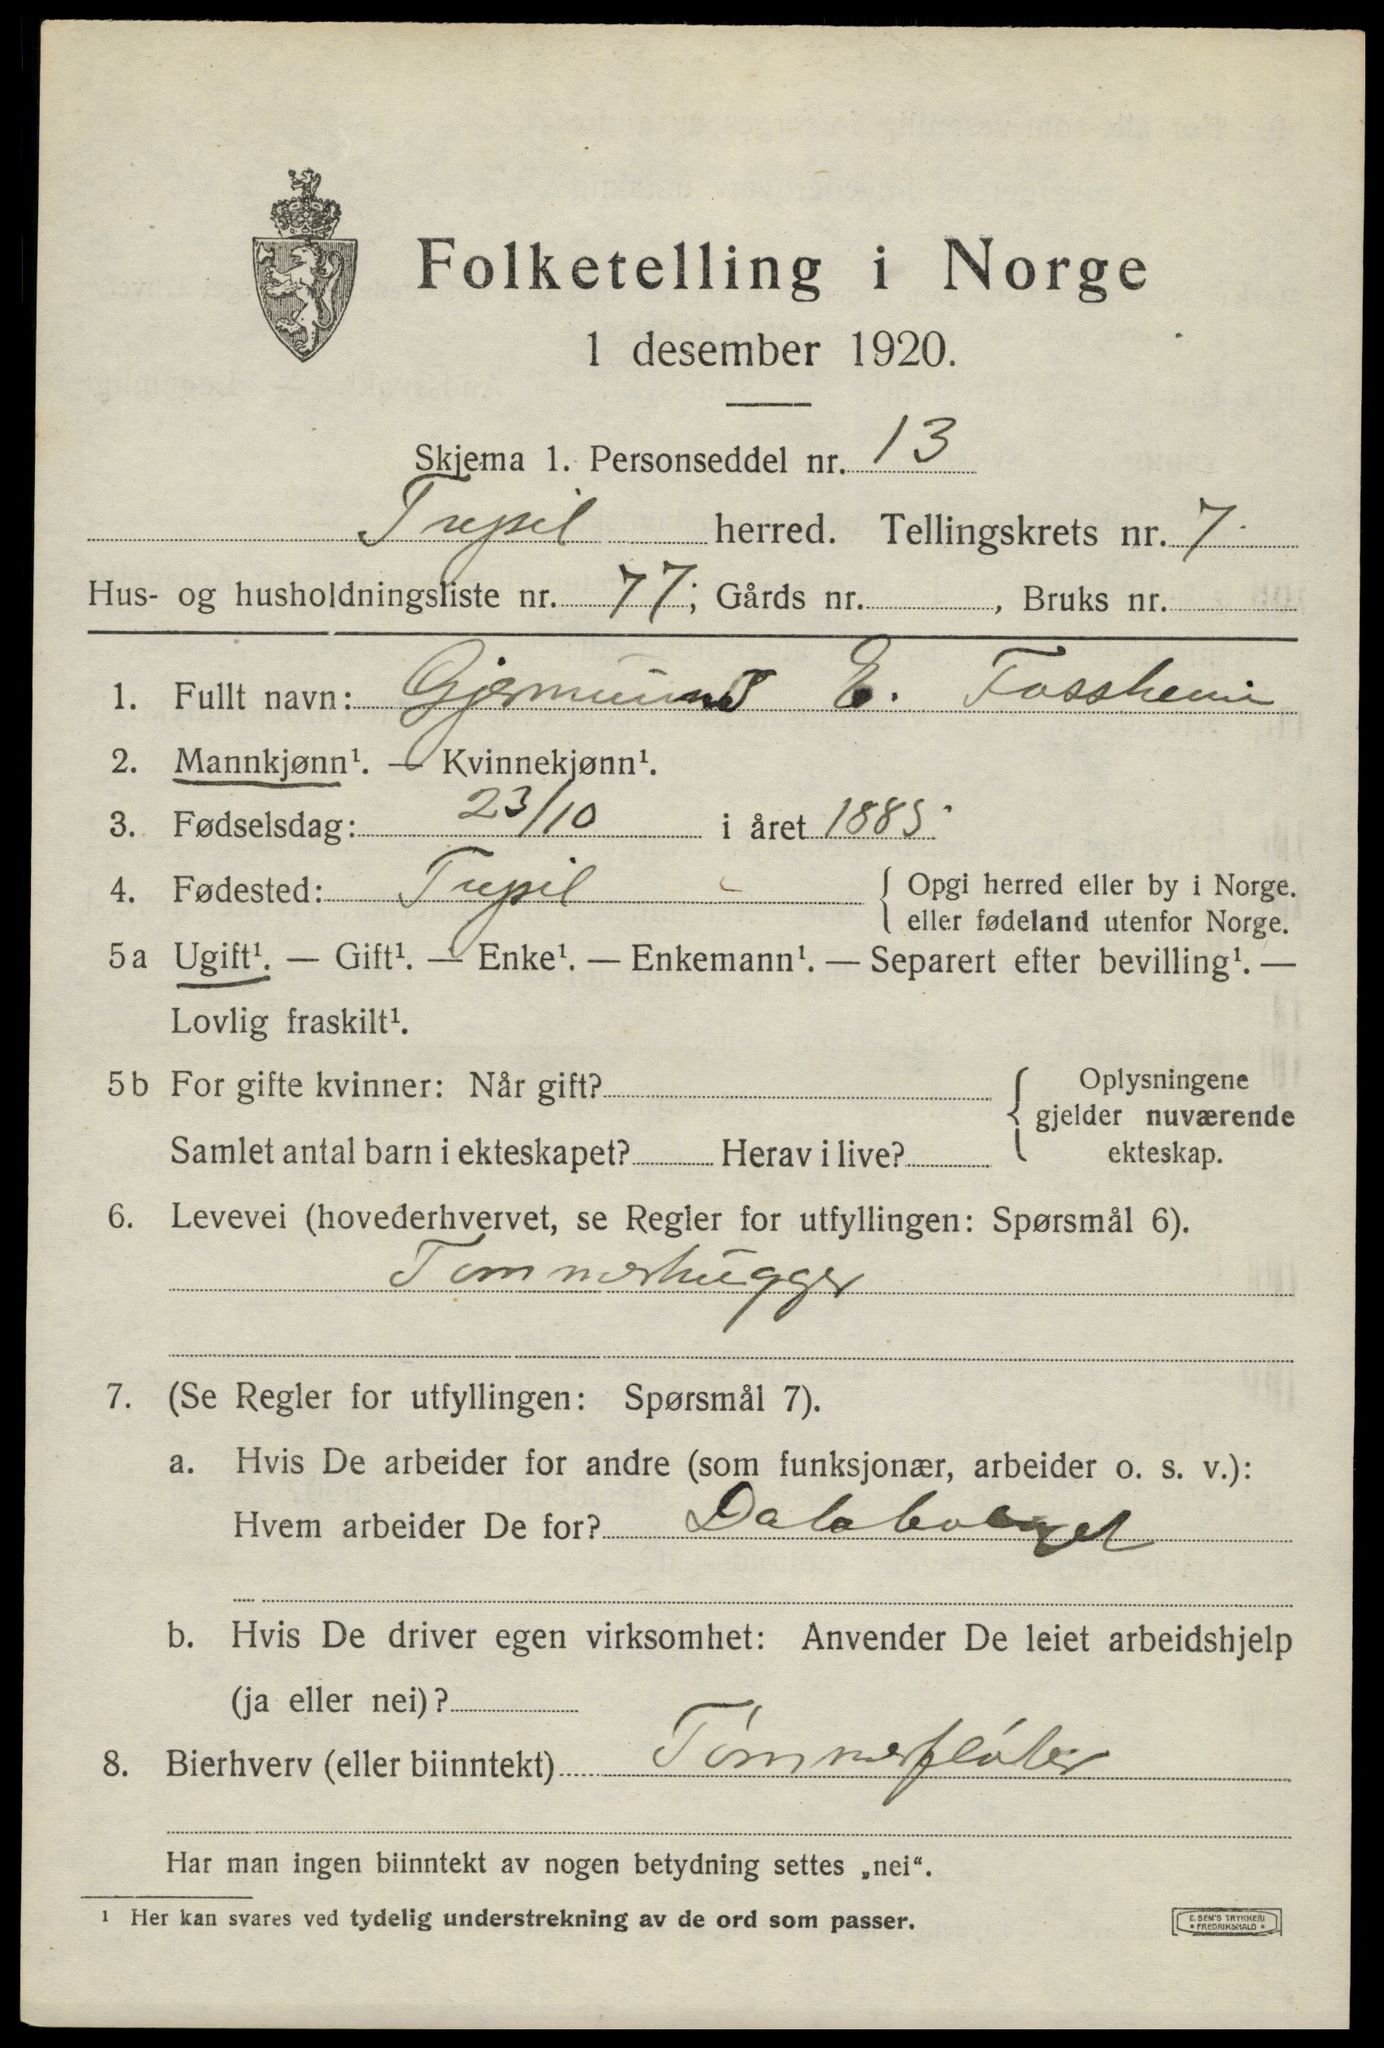 Folketelling i Norge
1 desember 1920.
Skjema 1. Personseddel nr. 13
Trysil herred. Tellingskrets nr. 7
Hus- og husholdningsliste nr. 77; Gårds nr. , Bruks nr.
1. Fullt navn: Gjermund E. Fossheim
2. Mannkjønn¹. — Kvinnekjønn¹.
3. Fødselsdag: 23/10 i året 1885
4. Fødested: Trysil { Opgi herred eller by i Norge.
eller fødeland utenfor Norge.
5a Ugift¹. — Gift¹. — Enke¹. — Enkemann¹. — Separert efter bevilling¹. —
Lovlig fraskilt¹.
5b For gifte kvinner: Når gift? { Oplysningene
gjelder nuværende
Samlet antal barn i ekteskapet? Herav i live? ekteskap.
6. Levevei (hovederhvervet, se Regler for utfyllingen: Spørsmål 6).
Tømmerhugger
7. (Se Regler for utfyllingen: Spørsmål 7).
a. Hvis De arbeider for andre (som funksjonær, arbeider o. s. v.):
Hvem arbeider De for?
b. Hvis De driver egen virksomhet: Anvender De leiet arbeidshjelp
(ja eller nei)?
8. Bierhverv (eller biinntekt) Tømmerfløter
Har man ingen biinntekt av nogen betydning settes „nei“.
¹ Her kan svares ved tydelig understrekning av de ord som passer.
E. SEM'S TRYKKERI
• FREDRIKSHALD •